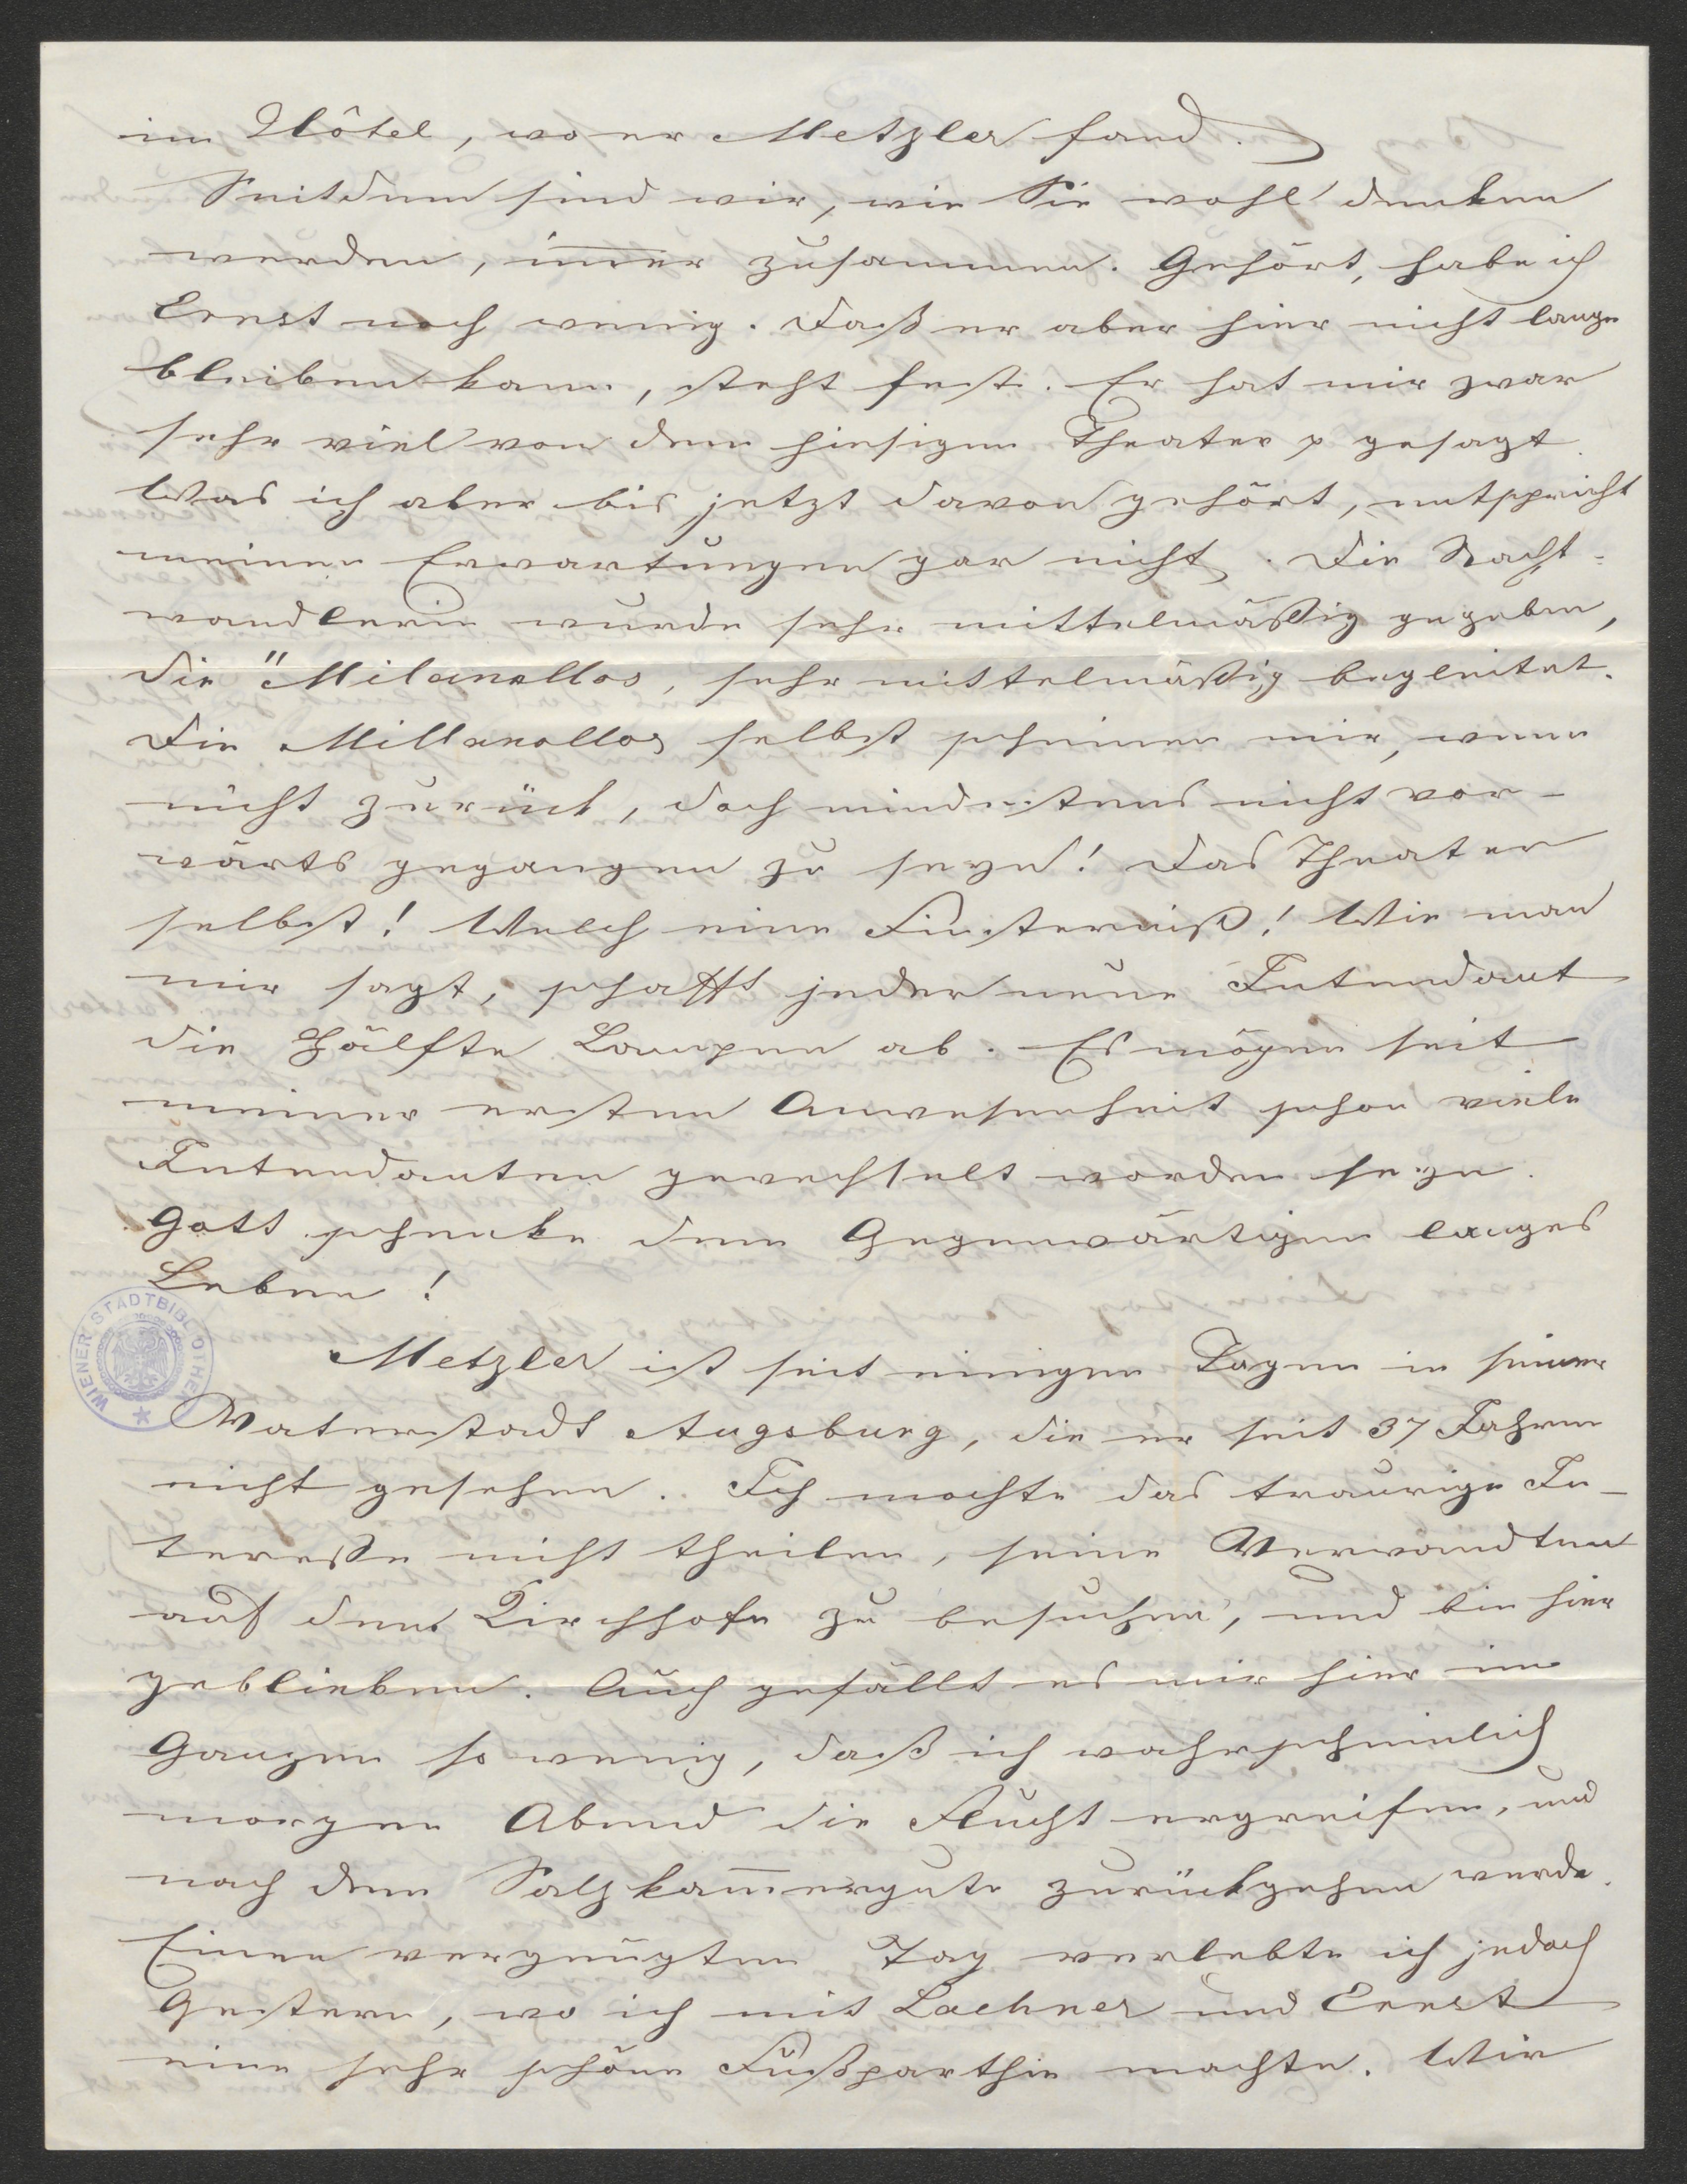 im Hôtel, wo er Metzler fand.
Seitdem sind wir, wie Sie wohl denken
werden, im̅er zusammen. Gehört, habe ich
Ernst noch wenig. Daß er aber hier nicht lange
bleiben kann, steht fest. Er hat mir zwar
sehr viel von dem hiesigen Theater p gesagt.
Was ich aber bis jetzt davon gehört, entspricht
meinen Erwartungen gar nicht. Die Nacht-
wandlerin wurde sehr mittelmäßig gegeben,
die "Milanollos, sehr mittelmäßig begleitet.
Die Millanollos selbst scheinen mir, wenn
nicht zurück, doch mindestens nicht vor-
wärts gegangen zu seyn! Das Theater
selbst! Welch eine Finsterniß! Wie man
mir sagt, schafft jeder neue Intendant
die Hälfte Lampen ab. Es mögen seit
meiner ersten Anwesenheit schon viele
Intendanten gewechselt worden seyn.
Gott schenke dem Gegenwärtigen langes
Leben!
WIENER STADTBIBLIOTHEK
Metzler ist seit einigen Tagen in seiner
Vaterstadt Augsburg, die er seit 37 Jahren
nicht gesehen. Ich mochte das traurige In-
teresse nicht theilen, seine Verwandten
auf dem Kirchhofe zu besuchen, und bin hier
geblieben. Auch gefällt es mir hier im
Ganzen so wenig, daß ich wahrscheinlich
morgen Abend die Flucht ergreifen, und
nach dem Salzkam̅ergute zurückgehen werde.
Einen vergnügten Tag verlebte ich jedoch
Gestern, wo ich mit Lachner und Ernst
eine sehr schöne Fußparthie machte. Wir